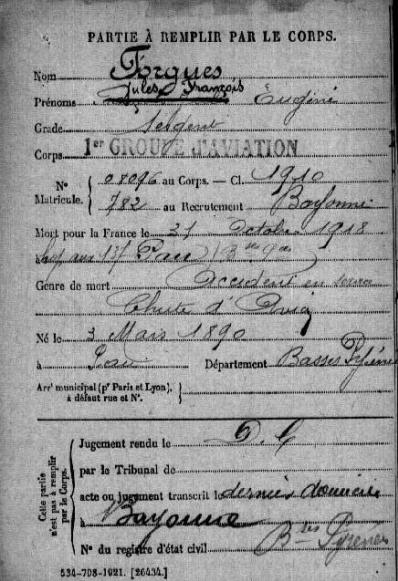 PARTIE À REMPLIR PAR LE CORPS.
Nom Forgues
Jules François
Prénoms Eugène
Grade Sergent
Corps 1er GROUPE D'AVIATION
N° Matricule. { 08096 au Corps. — Cl. 1910
782 au Recrutement Bayonne
Mort pour la France le 31 Octobre 1918
Pau (Bses Pées)
Genre de mort Accident en service
Chute d'Avion
Né le 3 Mars 1890
à Pau Département Basses Pyrénées
Arrt municipal (pr Paris et Lyon), à défaut rue et N°.
Cette partie n'est pas à remplir par le Corps.
Jugement rendu le D. C
par le Tribunal de
acte ou jugement transcrit le dernier domicile
à Bayonne
Bses Pyrénées
N° du registre d'état civil
534-708-1921. [26434.]